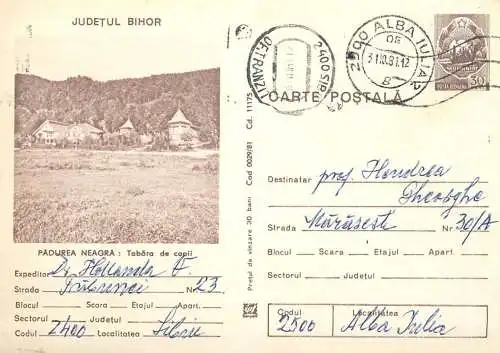 JUDEȚUL BIHOR
2500 ALBA IULIA
31.10.81.12
OF. TRANZIT
2400 SIBIU
30
CARTE POȘTALĂ
Destinatar prof. Hendrea
Gheorghe
Strada Mărășești Nr. 30/A
Blocul Scara Etajul Apart.
Sectorul Județul
Codul Localitatea
2500 Alba Iulia
Prețul de vînzare 30 bani Cod 0029/81 Cd. 11175
PĂDUREA NEAGRĂ : Tabăra de copii
Expeditor Dr. Hollanda F.
Strada Nr. 23.
Blocul Scara Etajul Apart.
Sectorul Județul
Codul 2400 Localitatea Sibiu